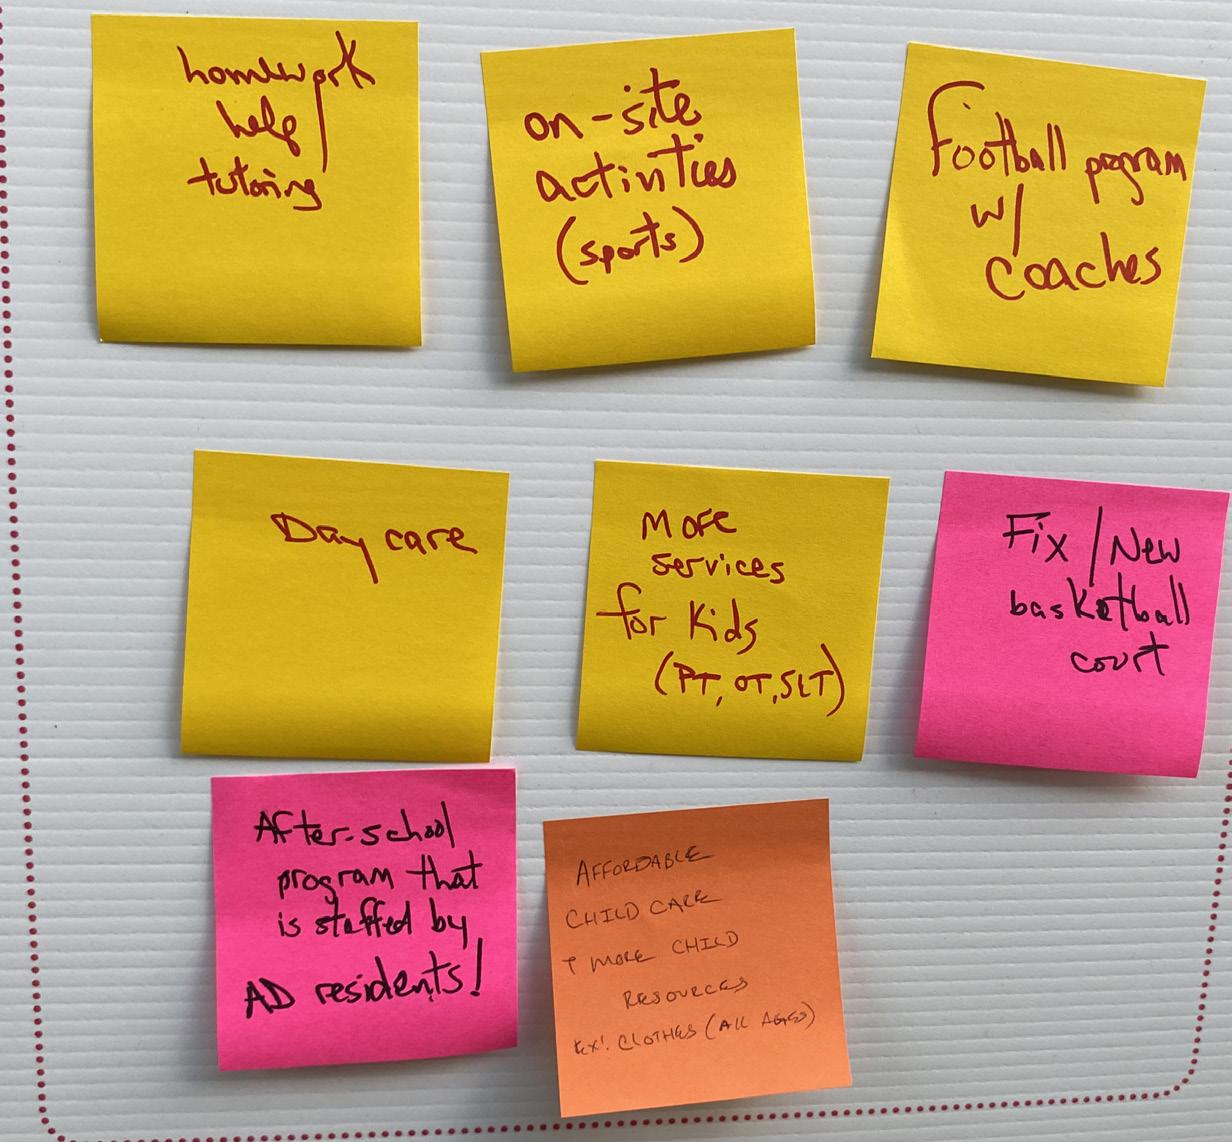 homework
help/
tutoring
on-site
activities
(sports)
Football program
w/
coaches
Day care
More
services
for Kids
(PT, OT, SLT)
Fix/New
basketball
court
After-school
program that
is staffed by
AD residents!
AFFORDABLE
CHILD CARE
↑ MORE CHILD
RESOURCES
EX: CLOTHES (ALL AGES)